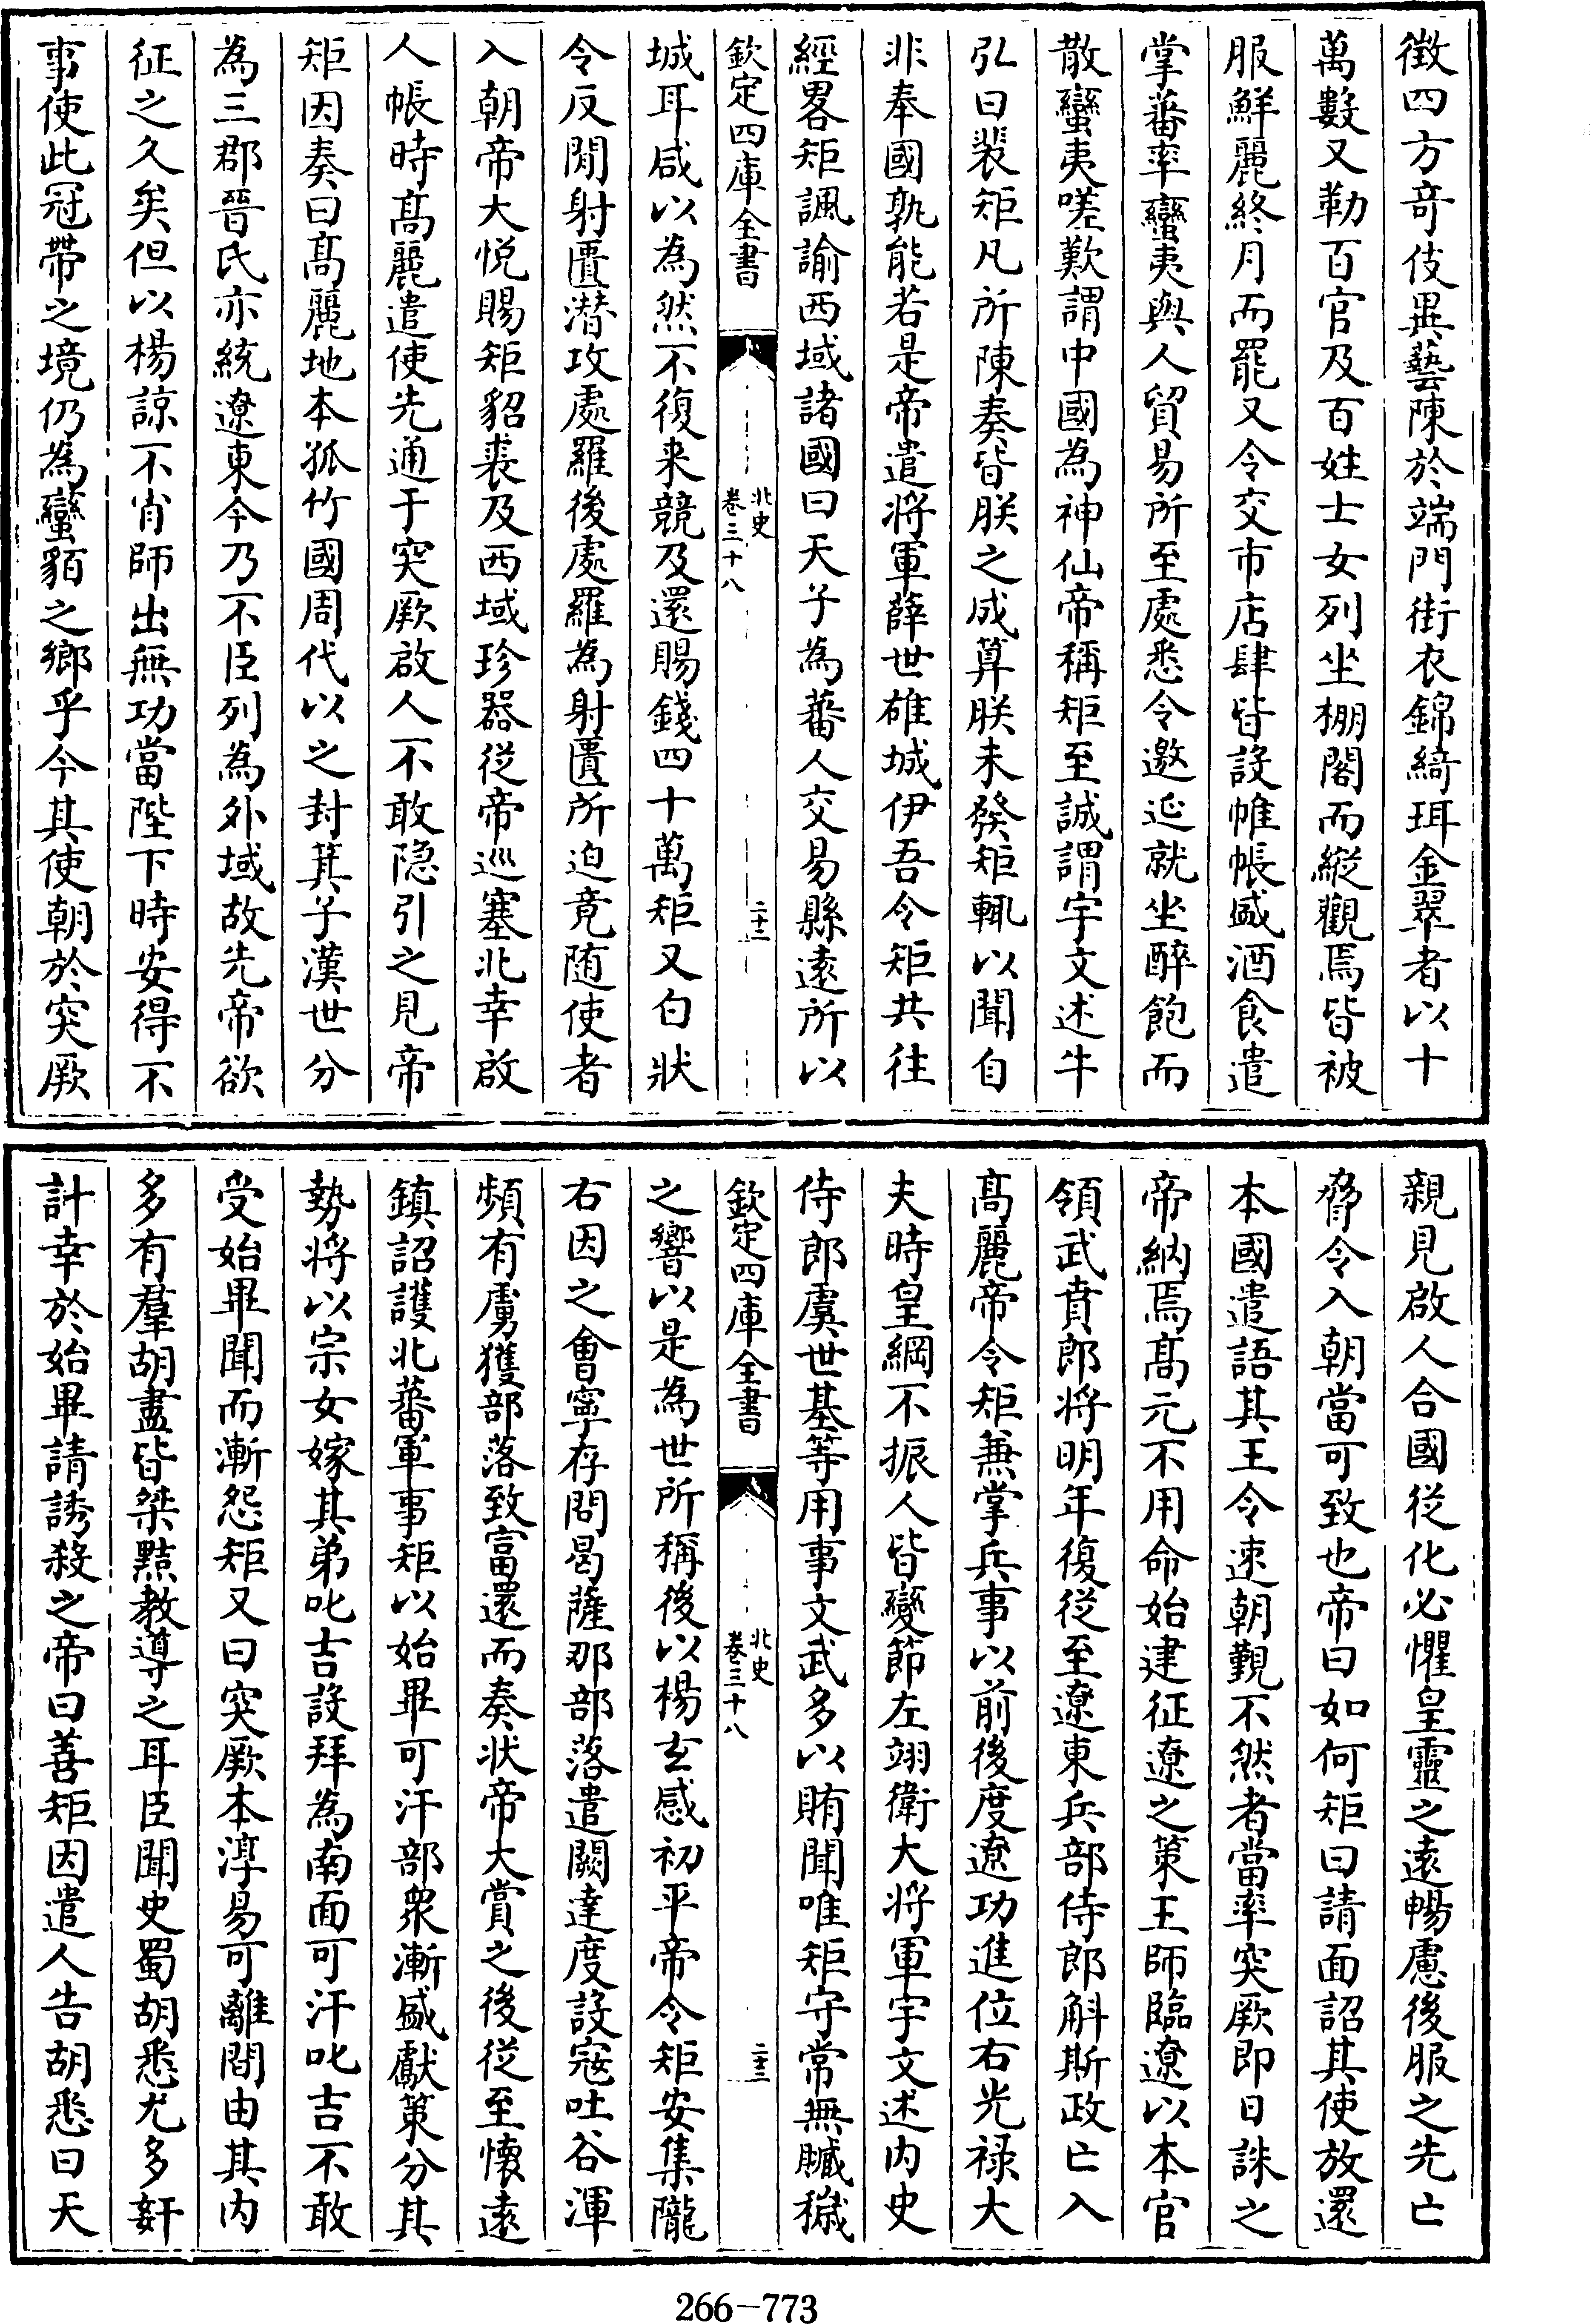 徴四方竒伎異藝陳於端門街衣錦綺珥金翠者以十
萬數又勒百官及百姓士女列坐棚閣而縱觀焉皆被
服鮮麗終月而罷又令交市店肆皆設帷帳盛酒食遣
掌蕃率蠻夷與人貿易所至處悉令邀延就坐醉飽而
散蠻夷嗟歎謂中國為神仙帝稱矩至誠謂宇文述牛
弘曰裴矩凡所陳奏皆朕之成算朕未發矩輒以聞自
非奉國孰能若是帝遣將軍薛世雄城伊吾令矩共往
經畧矩諷諭西域諸國曰天子為蕃人交易縣遠所以
欽定四庫全書
北史
卷三十八
二十二
城耳咸以為然不復来競及還賜錢四十萬矩又白狀
令反間射匱潜攻處羅後處羅為射匱所迫竟随使者
入朝帝大悦賜矩貂裘及西域珍器從帝巡塞北幸啟
人帳時髙麗遣使先通于突厥啟人不敢隐引之見帝
矩因奏曰髙麗地本孤竹國周代以之封箕子漢世分
為三郡晉氏亦統遼東今乃不臣列為外域故先帝欲
征之久矣但以楊諒不肖師出無功當陛下時安得不
事使此冠帶之境仍為蠻貊之鄉乎今其使朝於突厥
親見啟人合國從化必懼皇靈之遠暢慮後服之先亡
脅令入朝當可致也帝曰如何矩曰請面詔其使放還
本國遣語其王令速朝覲不然者當率突厥即日誅之
帝納焉髙元不用命始建征遼之策王師臨遼以本官
領武賁郎將明年復從至遼東兵部侍郎斛斯政亡入
髙麗帝令矩兼掌兵事以前後度遼功進位右光禄大
夫時皇綱不振人皆變節左翊衛大將軍宇文述内史
侍郎虞世基等用事文武多以賄聞唯矩守常無贓穢
欽定四庫全書
北史
卷三十八
二十三
之響以是為世所稱後以楊玄感初平帝令矩安集隴
右因之會寧存問曷薩那部落遣闕達度設宼吐谷渾
頻有虜獲部落致富還而奏状帝大賞之後從至懐遠
鎮詔護北蕃軍事矩以始畢可汗部衆漸盛獻策分其
勢將以宗女嫁其弟叱吉設拜為南面可汗叱吉不敢
受始畢聞而漸怨矩又曰突厥本淳易可離間由其内
多有羣胡盡皆桀黠教導之耳臣聞史蜀胡悉尤多奸
計幸於始畢請誘殺之帝曰善矩因遣人告胡悉曰天
266-773